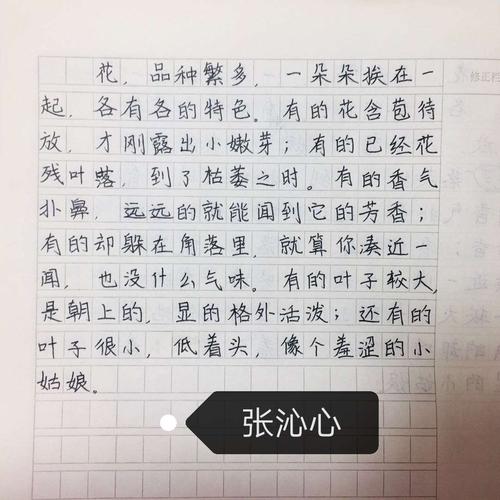 花，品种繁多，一朵朵挨在一
起，各有各的特色。有的花含苞待
放，才刚露出小嫩芽；有的已经花
残叶落，到了枯萎之时。有的香气
扑鼻，远远的就能闻到它的芳香；
有的却躲在角落里，就算你凑近一
闻，也没什么气味。有的叶子较大，
是朝上的，显的格外活泼；还有的
叶子很小，低着头，像个羞涩的小
姑娘。
张沁心